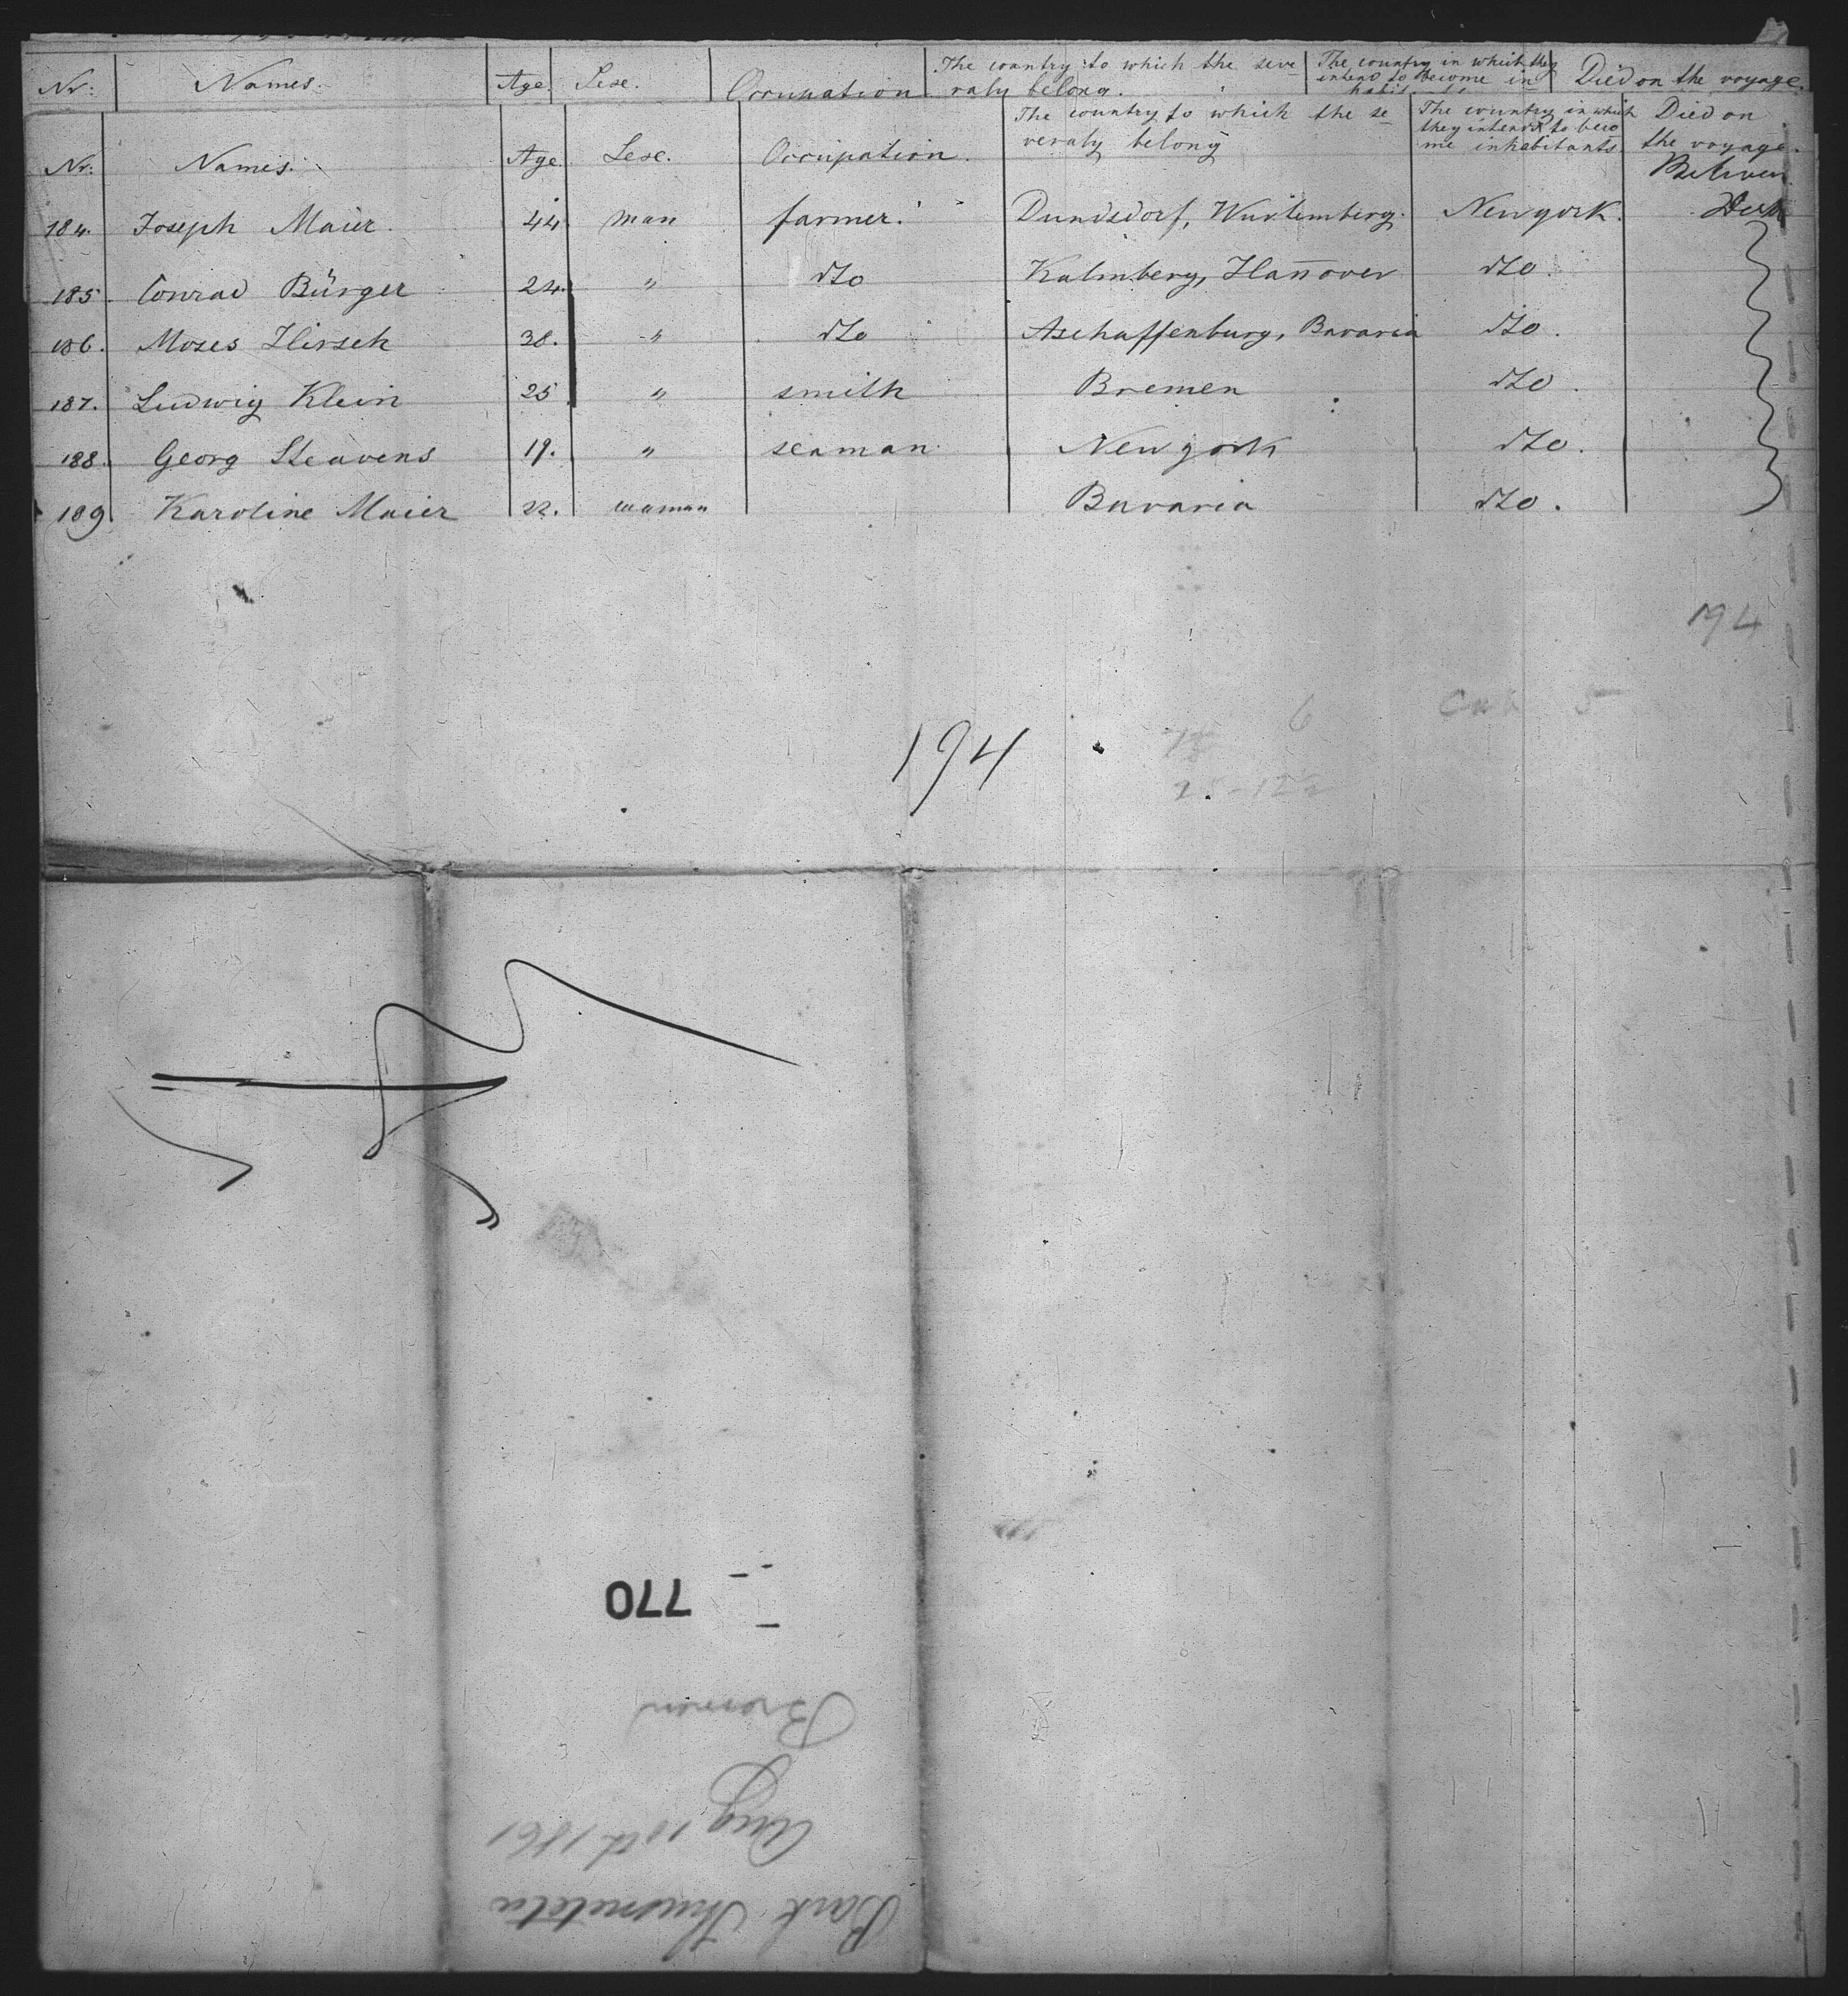 Nr: Names. Age. Sexe. Occupation The country to which the seve raly belong. The country in which they intend to become in Died on the voyage.
Nr: Names. Age. Sexe. Occupation. The country to which the se veraly belong The country in which they intend to beco me inhabitants Died on the voyage.
184. Joseph Maier. 44 man farmer. Dundsdorf, Wurtemberg. Newyork.
185. Conrad Bürger 24. " dto Kalmberg, Hannover dto.
186. Moses Hirsch 38. " dto Aschaffenburg, Bavaria dto.
187. Ludwig Klein 25 " smith Bremen dto.
188. Georg Steavens 19. " seaman Newyork dto.
189 Karoline Maier 22. woman Bavaria dto.
194
6
194
770
Bremen
Aug 10th 1861
Bark Thusnelda